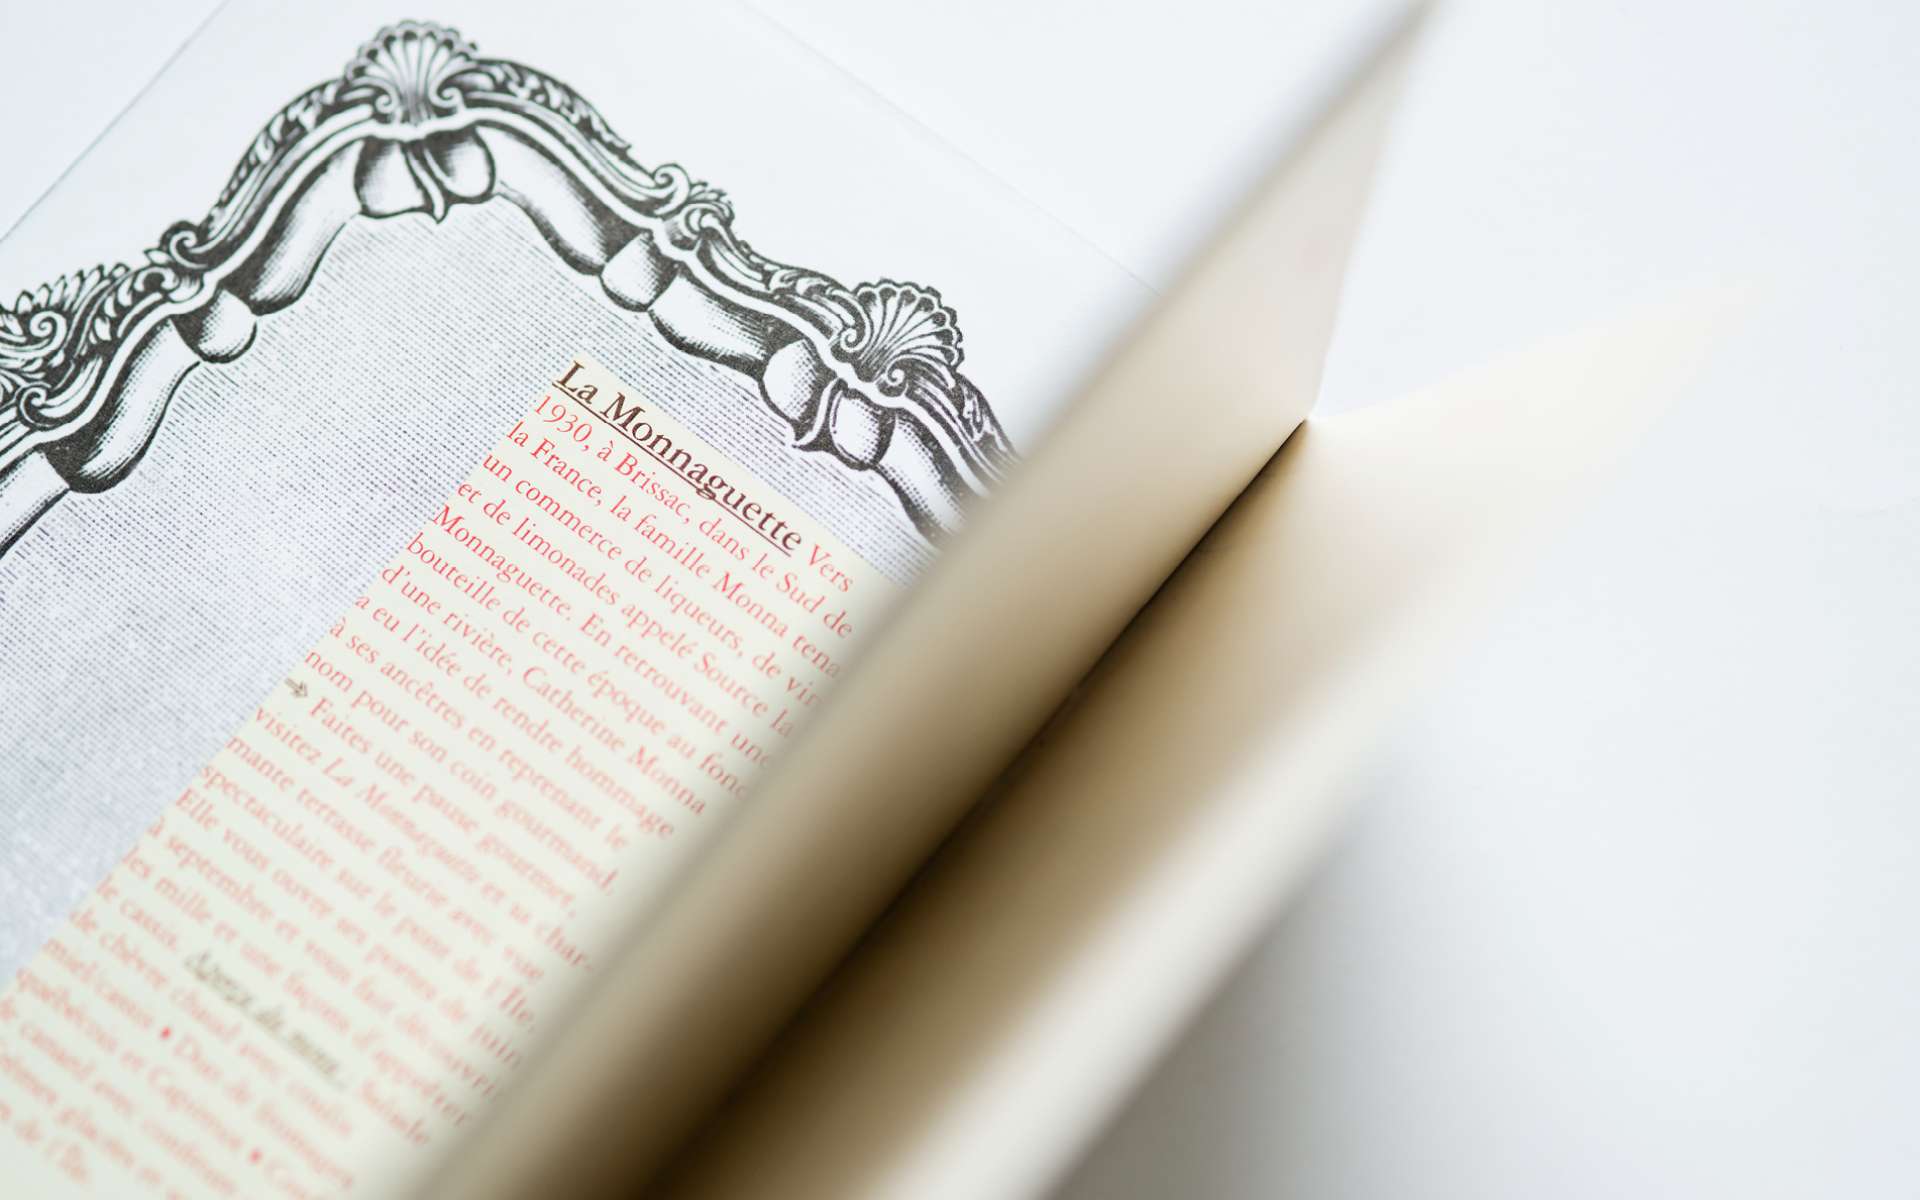 La Monnaguette Vers
1930, à Brissac, dans le Sud de
la France, la famille Monna tena
un commerce de liqueurs, de vin
et de limonades appelé Source la
Monnaguette. En retrouvant une
bouteille de cette époque au fond
d'une rivière, Catherine Monna
a eu l'idée de rendre hommage
à ses ancêtres en reprenant le
nom pour son coin gourmand.
→ Faites une pause gourmet,
visitez La Monnaguette et sa char-
mante terrasse fleurie avec vue
spectaculaire sur le pont de l'île.
Elle vous ouvre ses portes de juin
à septembre et vous fait découvrir
les mille et une façons d'apprêter
le cassis.
de chèvre chaud avec confit
et Caponna • Duo de
le canard avec confiture
de l'île.